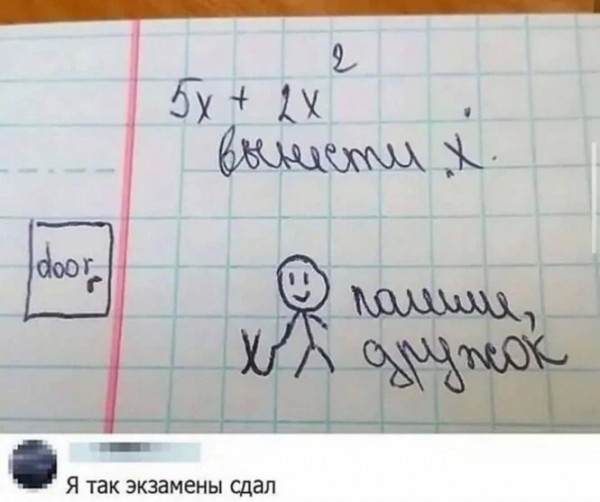 5x + 2x²
вынести x.
door
пошли,
x
дружок
Я так экзамены сдал